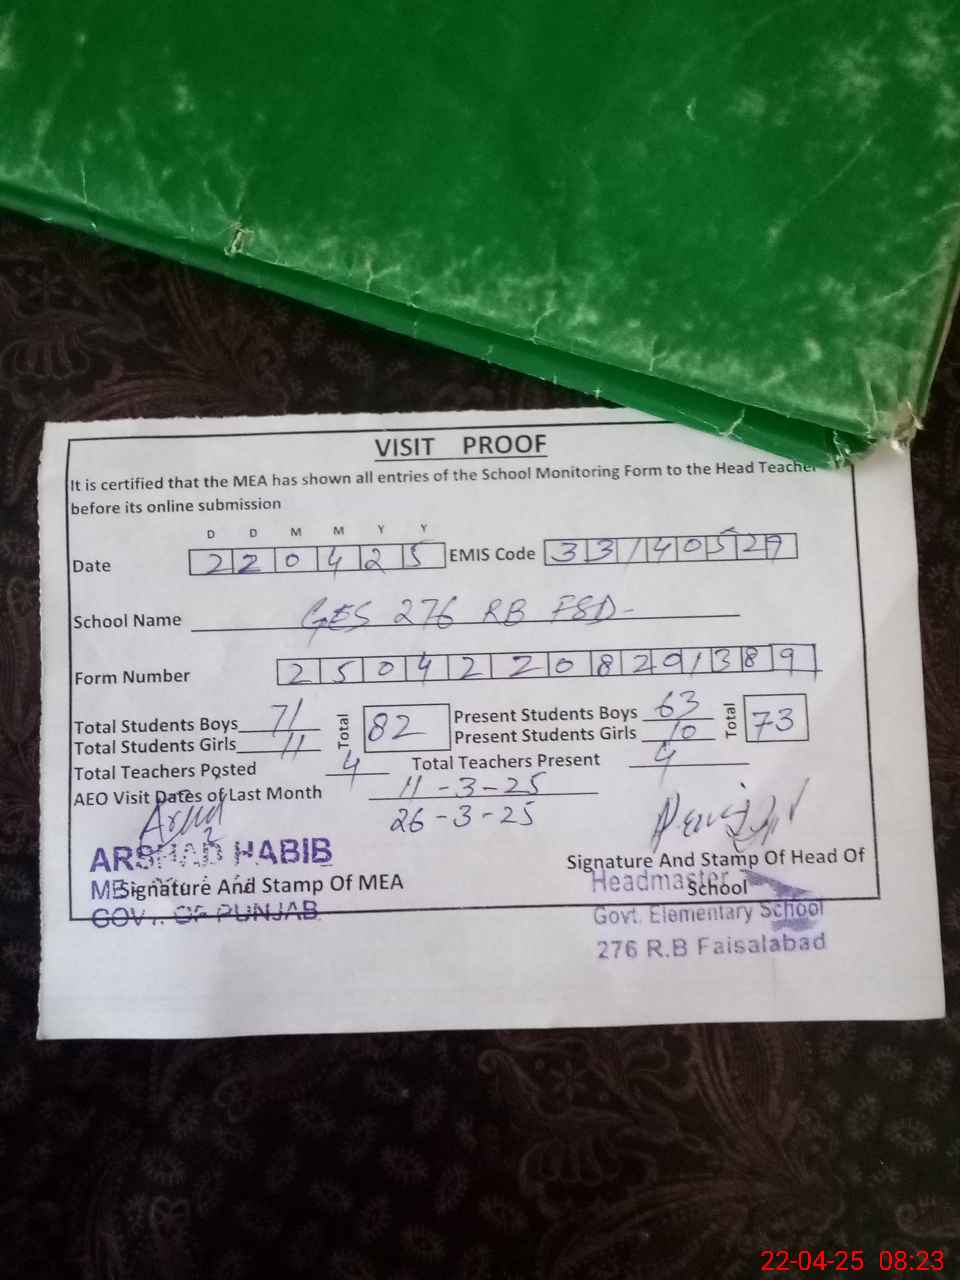 VISIT PROOF
It is certified that the MEA has shown all entries of the School Monitoring Form to the Head Teacher
before its online submission
D D M M Y Y
Date 2 2 0 4 2 5 EMIS Code 3 3 1 4 0 5 2 9
School Name GES 276 RB FSD-
Form Number 2 5 0 4 2 2 0 8 2 9 1 3 8 9
Total Students Boys 71 Total 82 Present Students Boys 63 Total 73
Total Students Girls 11 Present Students Girls 10
Total Teachers Posted 4 Total Teachers Present 4
AEO Visit Dates of Last Month 11-3-25
26-3-25
ARSHAD HABIB
Signature And Stamp Of MEA
GOVT. OF PUNJAB
Signature And Stamp Of Head Of
School
Headmaster
Govt. Elementary School
276 R.B Faisalabad
22-04-25 08:23